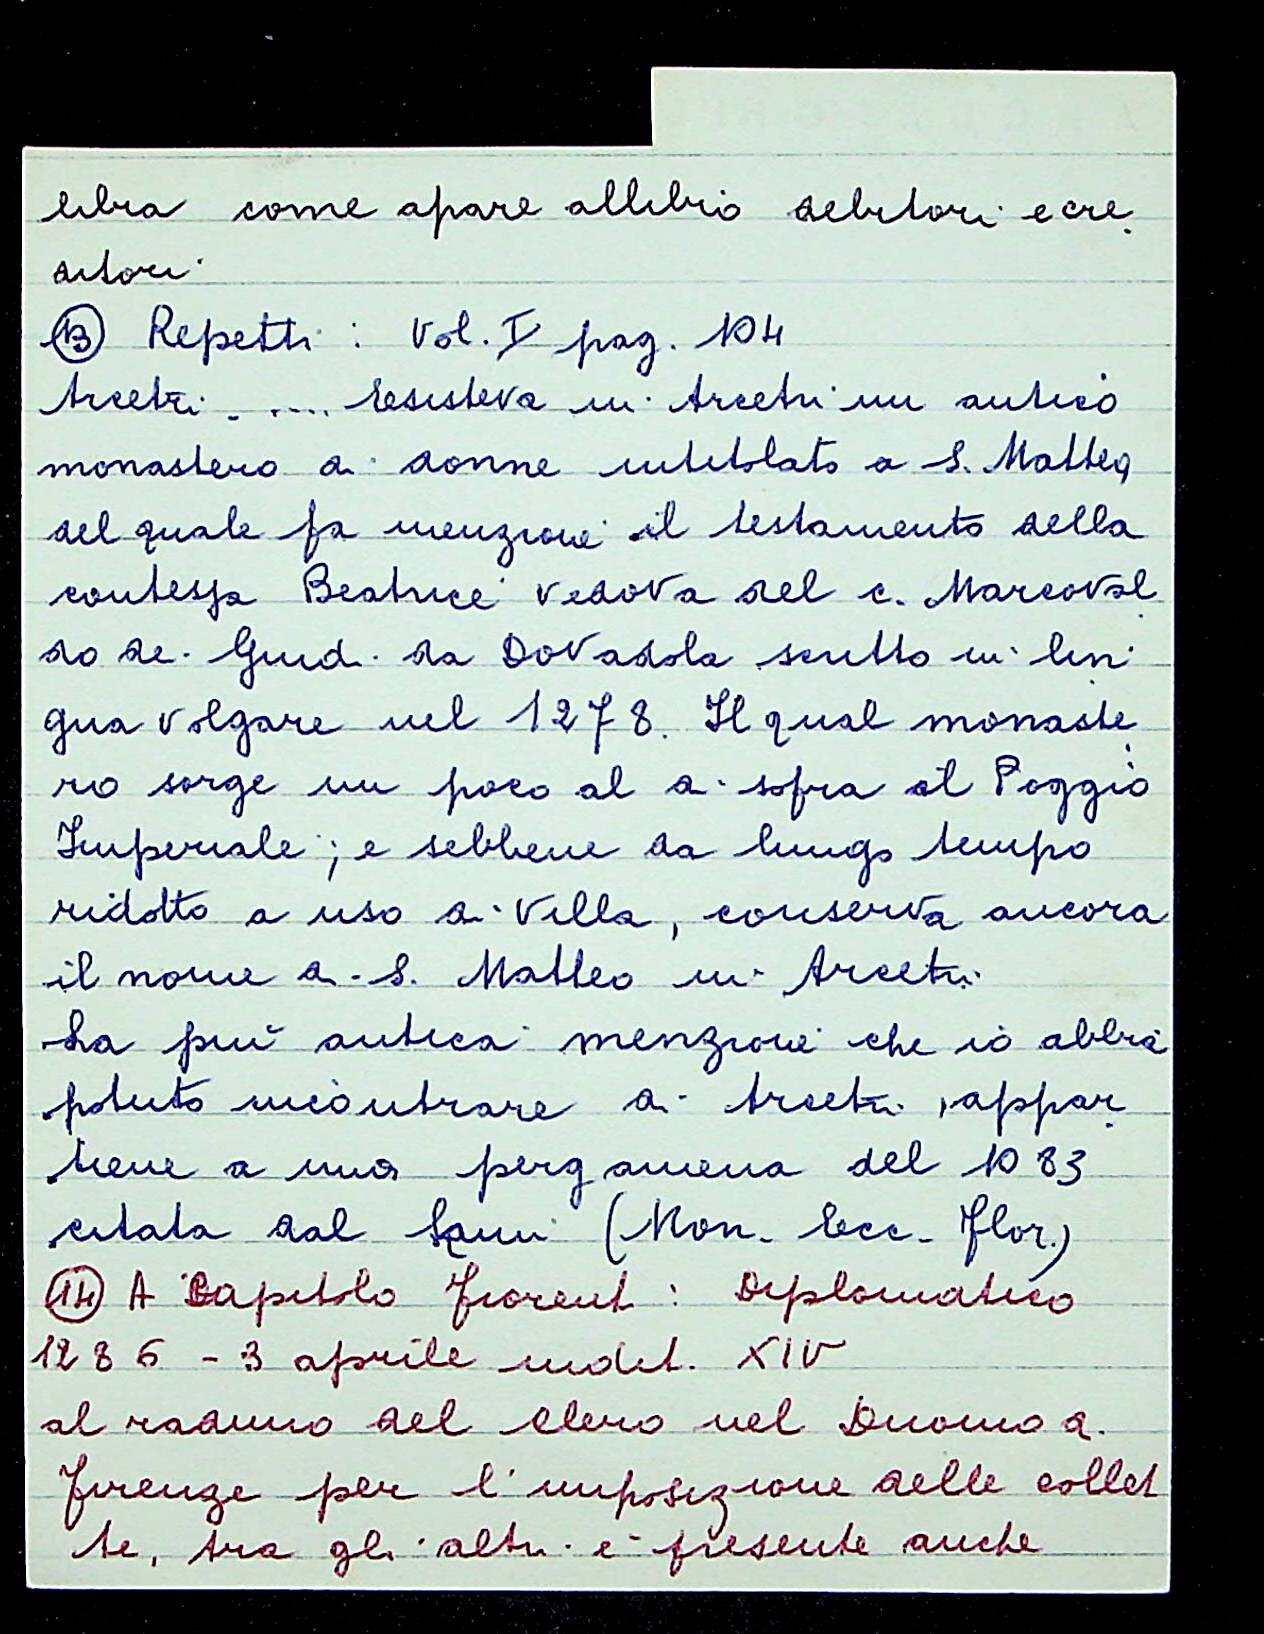 libra come apare allibro debitori e cre
ditori
13 Repetti: Vol. I pag. 104
Arcetri - .... Esisteva in Arcetri un antico
monastero di donne intitolato a S. Matteo,
del quale fa menzione il testamento della
contessa Beatrice vedova del c. Marcoval
do de' Guidi da Dovadola scritto in lin
gua volgare nel 1278. Il qual monaste
ro sorge un poco al di sopra il Poggio
Imperiale; e sebbene da lungo tempo
ridotto a uso di Villa, conserva ancora
il nome di S. Matteo in Arcetri.
La più antica menzione che io abbia
potuto incontrare di Arcetri, appar
tiene a una pergamena del 1083
citata dal Lami (Mon. Ecc. Flor.)
14 A Capitolo Fiorent: Diplomatico
1286 - 3 aprile indit. XIV
al raduno del Clero nel Duomo di
Firenze per l'imposizione delle collet
te, tra gli altri è presente anche